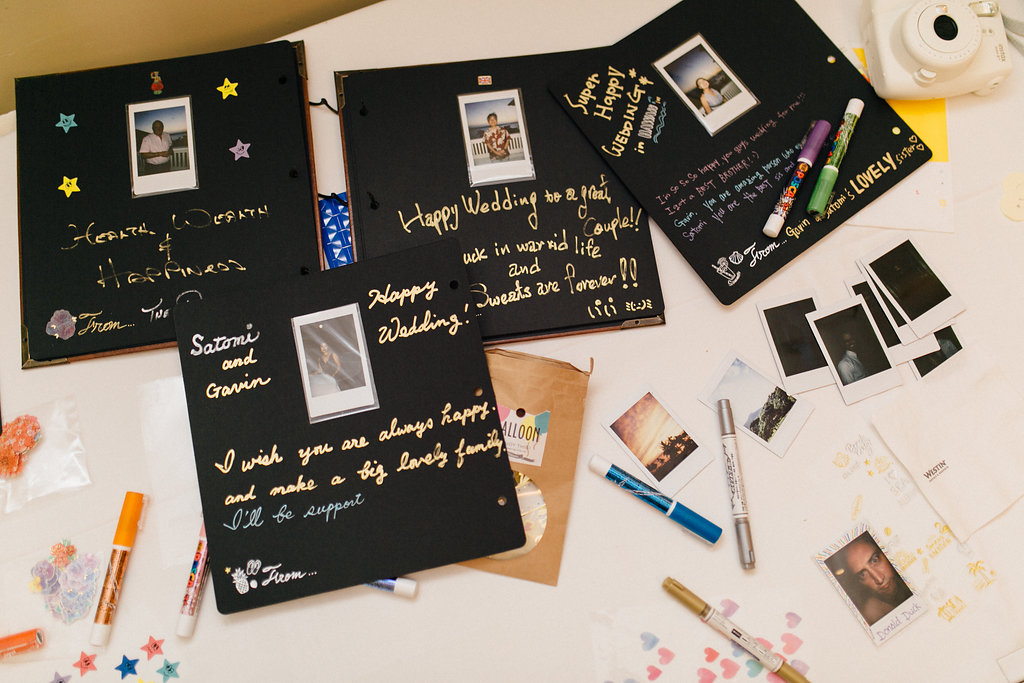 HEALTH, WEALTH
&
HAPPINESS
From...
Happy Wedding to a great
Couple!!
uck in
life
and
Sweats are forever!!
Super
Happy
WEDDING
in
I'm so so so happy you guys wedding for me!!!
I got a BEST BROTHER! :)
Gavin, you are amazing person who
Satomi, you are the best sis and
Gavin & Satomi's LOVELY sister♡
From...
Satomi
and
Gavin
Happy
Wedding!
I wish you are always happy.
and make a big lovely family.
I'll be support
From...
ALLOON
WESTIN
Donald Duck